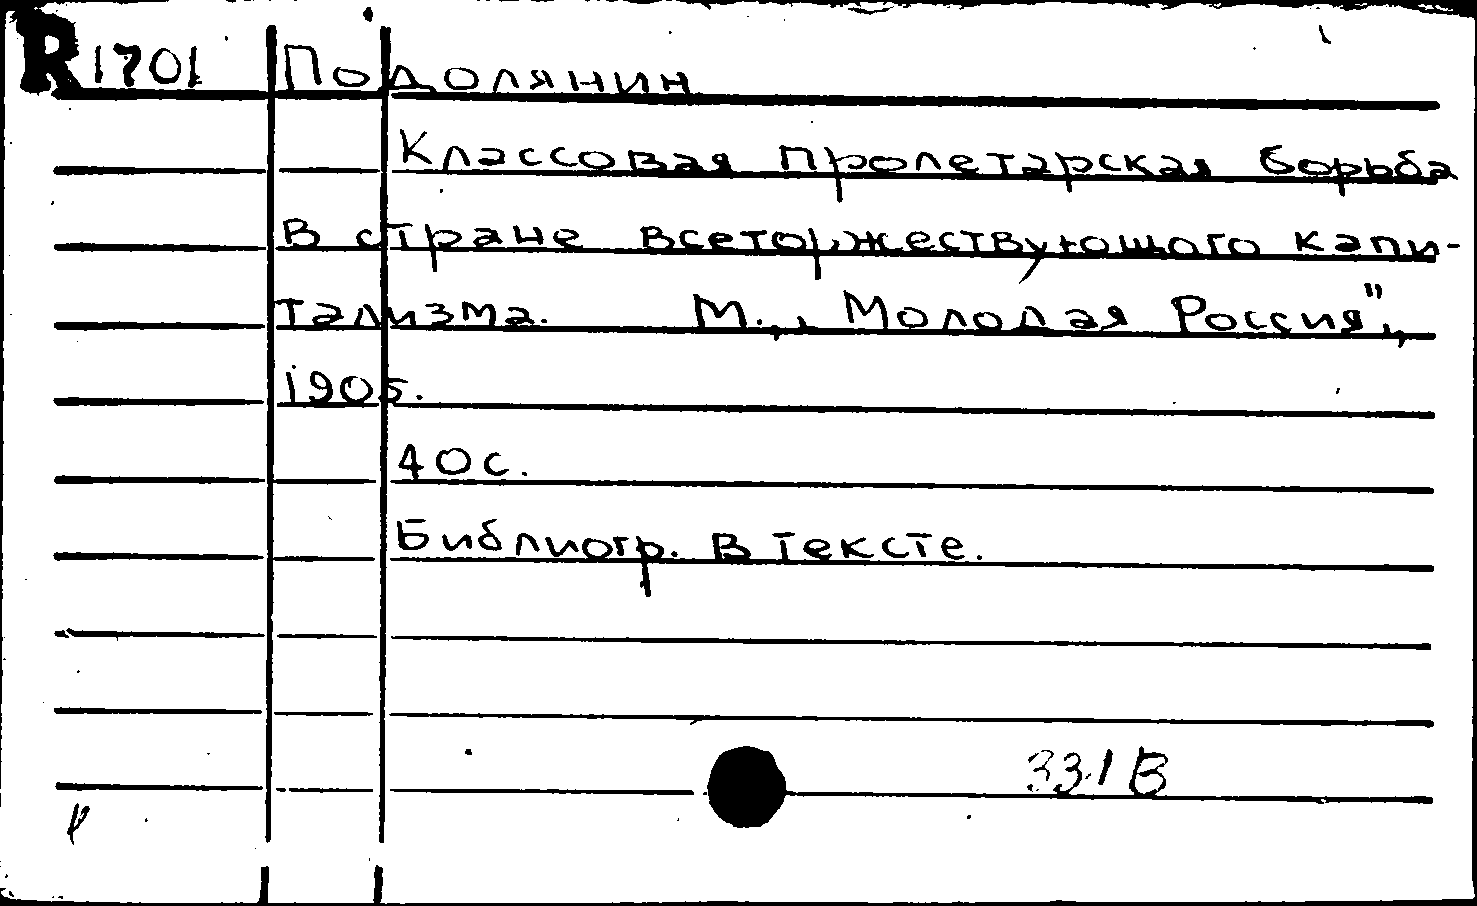 R 1701 Подолянин
Классовая пролетарская борьба
в стране всеторжествующего капи-
тализма. М., „Молодая Россия",
1905.
40 с.
Библиогр. в тексте.
331 В